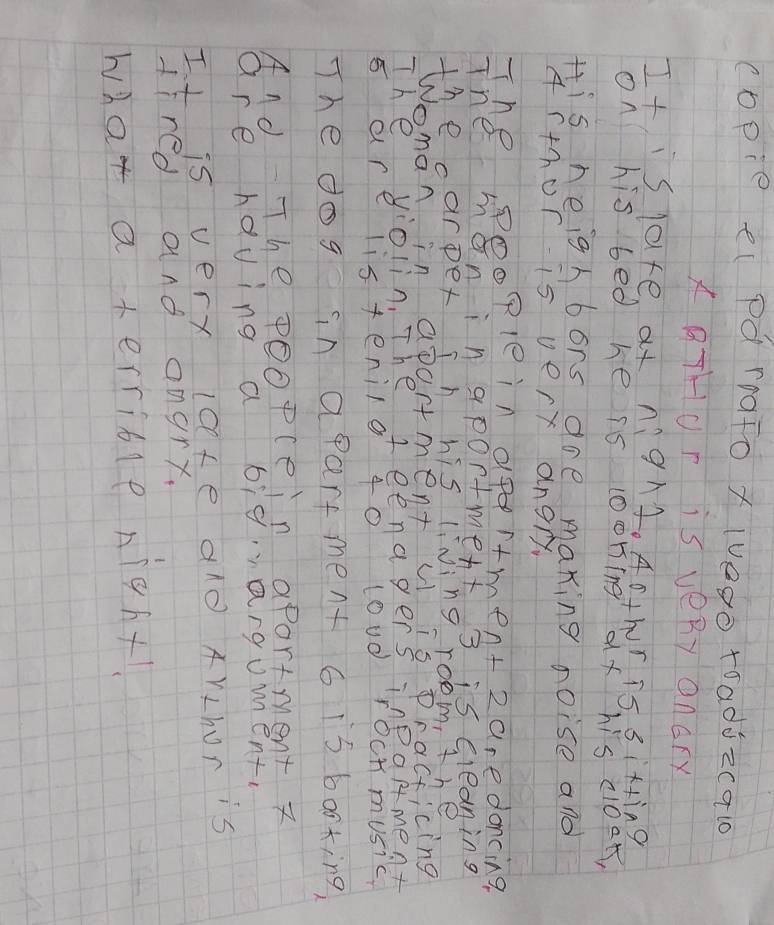 copie el párrafo y luego tradúzcalo
ARTHUR is very ANGRY
It is late at night. Arthur is sitting
on his bed he is looking at his clock,
His neighbors are making noise and
Arthur is very angry.
The people in apartment 2 are dancing,
The man in apartment 3 is cleaning
the carpet in his living room, the
woman in apartment 4 is practicing
The violin, The teenagers in partment
5 are listening to loud rock music,
The dog in apartment 6 is barking,
And The people in apartment 7
are having a big argument,
It is very late and Arthur is
tired and angry,
what a terrible night!